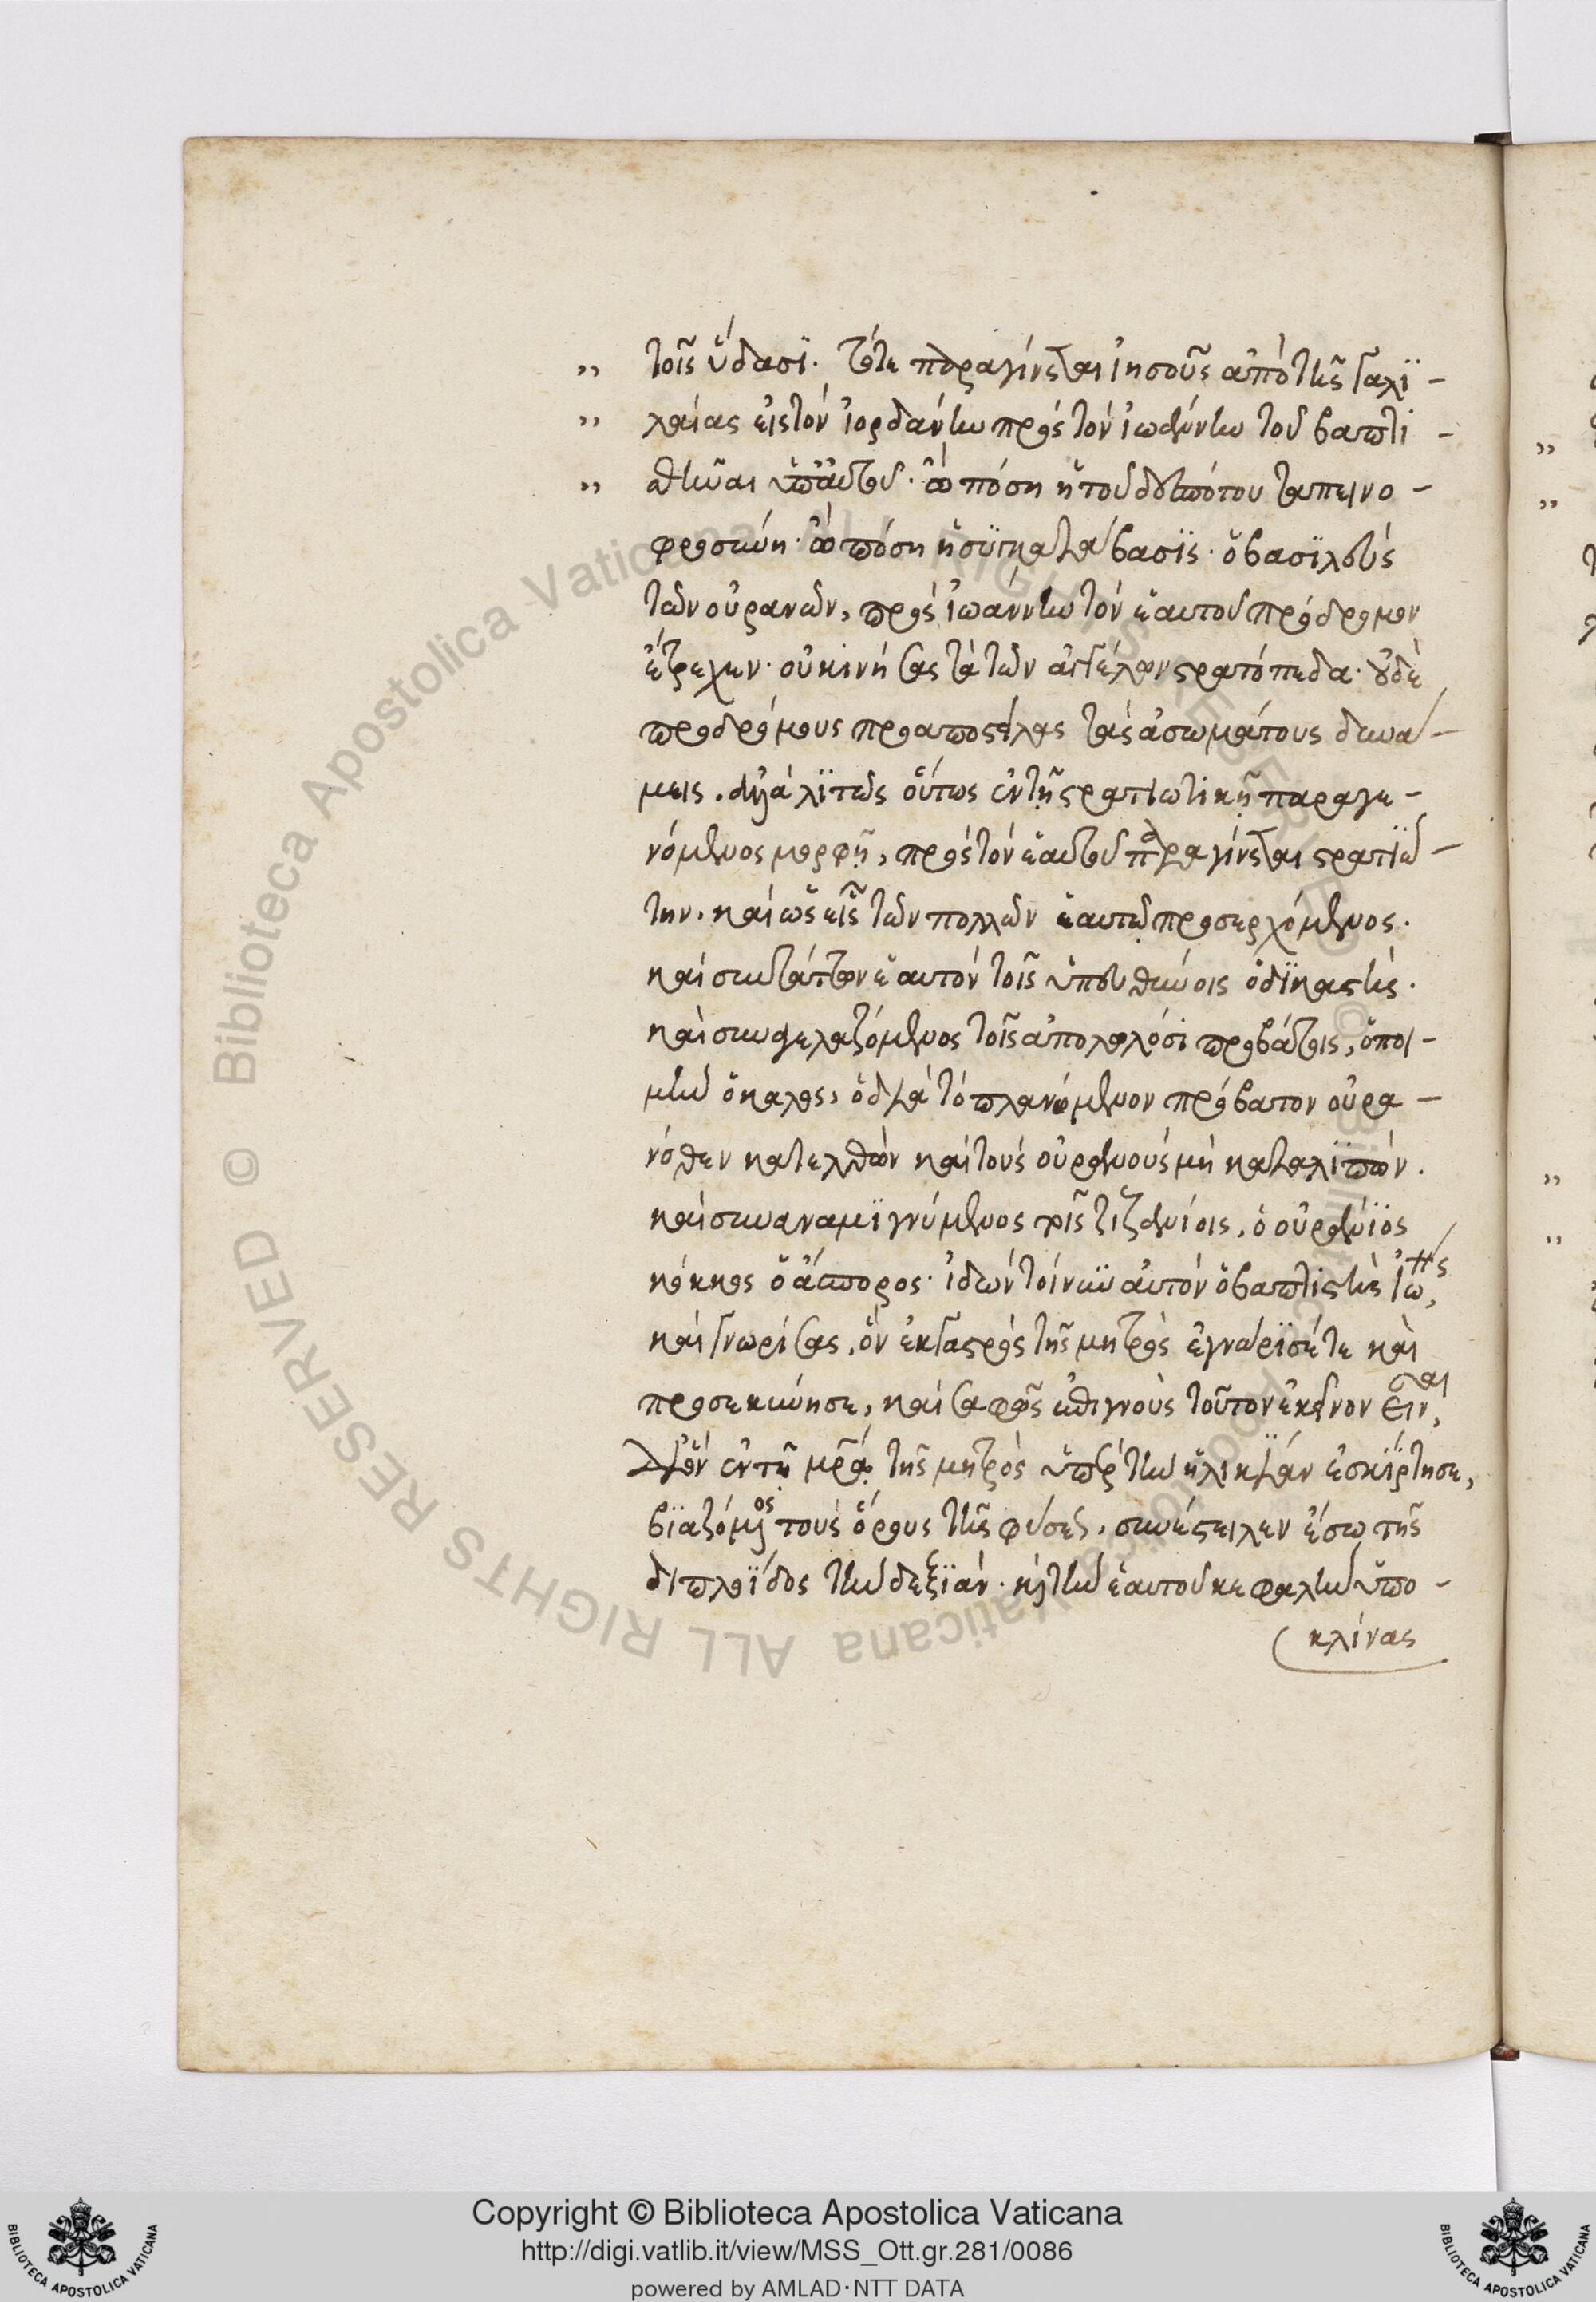 „ τοῖς ὕδασϊ. τότε παραγίνεται ἰησοῦς ἀπὸ τῆς γαλϊ-
„ λαίας εἰς τὸν ἰορδάνην πρὸς τὸν ἰωάννην τοῦ βαπτι-
„ σθῆναι ὑπ' αὐτοῦ. ὢ πόση ἡ τοῦ δεσπότου ταπεινο-
φροσύνη. ὢ πόση ἡ συγκατάβασϊς. ὁ βασϊλεὺς
τῶν οὐρανῶν, πρὸς ἰωάννην τὸν ἑαυτοῦ πρόδρομον
ἔτρεχεν. οὐ κινήσας τὰ τῶν ἀγγέλων στρατόπεδα. οὐδὲ
προδρόμους προαποστείλας τὰς ἀσωμάτους δυνά-
μεις. ἀλλὰ λϊτῶς οὕτως ἐν τῇ στρατιωτικῇ παραγε-
νόμενος μορφῇ, πρὸς τὸν ἑαυτοῦ παραγίνεται στρατϊώ-
την. καὶ ὡς εἷς τῶν πολλῶν ἑαυτῷ προσερχόμενος.
καὶ συντάττων ἑαυτὸν τοῖς ὑπευθύνοις ὁ δϊκαστής.
καὶ συναγελαζόμενος τοῖς ἀπολωλόσι προβάτοις, ὁ ποι-
μὴν ὁ καλός, ὁ διὰ τὸ πλανώμενον πρόβατον οὐρα-
νόθεν κατελθὼν καὶ τοὺς οὐρανοὺς μὴ καταλϊπών.
καὶ συναναμϊγνύμενος τοῖς ζιζανίοις, ὁ οὐράνϊος
κόκκος ὁ ἄσπορος. ἰδὼν τοίνυν αὐτὸν ὁ βαπτιστὴς ἰωης,
καὶ γνωρίσας, ὃν ἐκ γαστρὸς τῆς μητρὸς ἐγνώρϊσέ τε καὶ
προσεκύνησε, καὶ σαφῶς ἐπιγνοὺς τοῦτον ἐκεῖνον εἶναι,
δι' ὃν ἐν τῇ μρᾳ τῆς μητρὸς ὑπὲρ τὴν ἡλικίαν ἐσκϊρτησε,
βϊαζόμενος τοὺς ὅρους τῆς φύσεως, συνέστειλεν ἔσω τῆς
διπλοΐδος τὴν δεξϊάν. καὶ τὴν ἑαυτοῦ κεφαλὴν ὑπο-
κλίνας
Copyright © Biblioteca Apostolica Vaticana
http://digi.vatlib.it/view/MSS_Ott.gr.281/0086
powered by AMLAD·NTT DATA